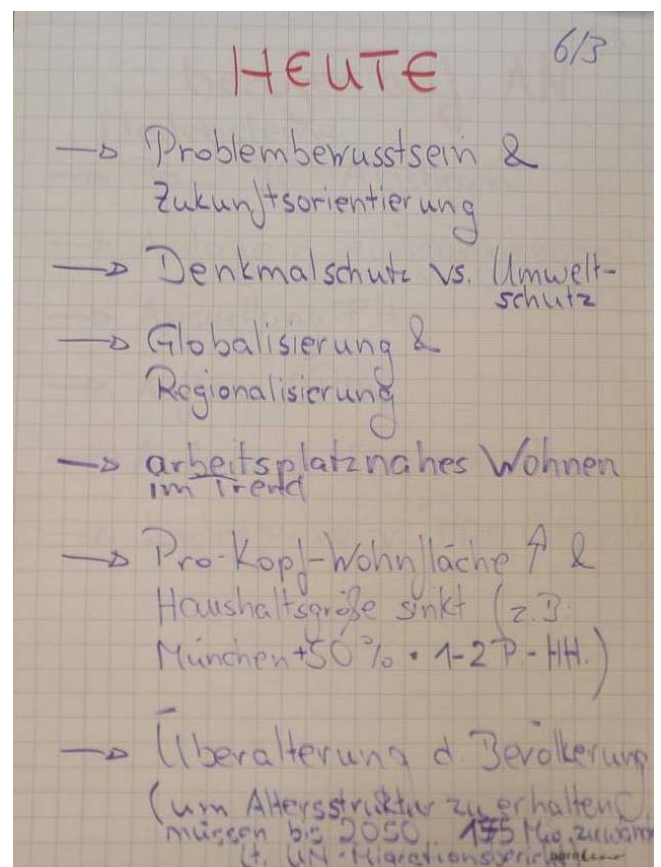 6/3
HEUTE
→ Problembewusstsein &
Zukunftsorientierung
→ Denkmalschutz vs. Umwelt-
schutz
→ Globalisierung &
Regionalisierung
→ arbeitsplatznahes Wohnen
im Trend
→ Pro-Kopf-Wohnfläche ↑ &
Haushaltsgröße sinkt (z.B.
München +50% • 1-2 P.-HH.)
→ Überalterung d. Bevölkerung
(um Altersstruktur zu erhalten
müssen bis 2050 Mio. zuwand
lt. UN-Migrationsbericht